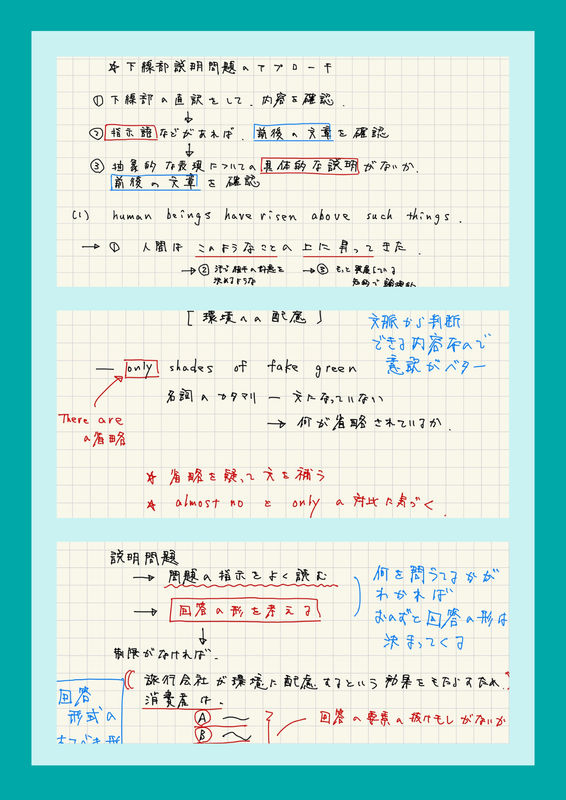 * 下線部説明問題のアプローチ
① 下線部の直訳をして、内容を確認.
↓
② 指示語などがあれば、前後の文章を確認
↓
③ 抽象的な表現についての具体的な説明がないか、
前後の文章を確認
(1) human beings have risen above such things.
→ ① 人間は このようなことの上に昇ってきた.
→②
決めるような
→③ もっと発展している
[環境への配慮]
文脈から判断
できる内容なので
意訳がベター
— only shades of fake green
名詞のカタマリ — 文になっていない
→ 何が省略されているか.
There are
の省略
* 省略を疑って文を補う
* almost no と only の対比に気づく.
説明問題
→ 問題の指示をよく読む
→ 回答の形を考える
何を問うてるかが
わかれば
おのずと回答の形は
決まってくる
↓
制限がなければ、
旅行会社が環境に配慮するという効果をもたらすため、
消費者は、
Ⓐ 〜
Ⓑ 〜
回答の要素の抜けもしがないか
回答
形式の